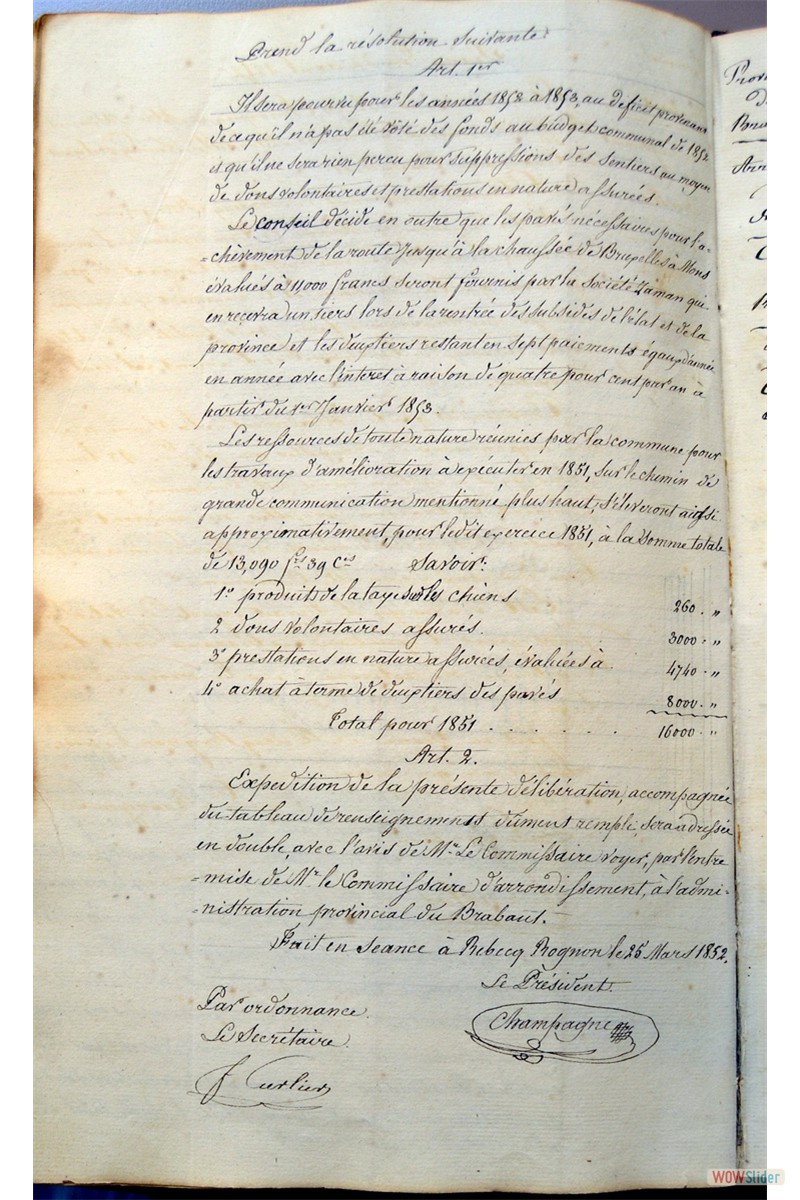 Prend la résolution suivante:
Art. 1er
Il sera pourvu pour les années 1852 à 1853, au deficit provenant
de ce qu'il n'a pas été voté des fonds au budget communal de 1852
et qu'il ne sera rien perçu pour suppressions des sentiers au moyen
de dons volontaires et prestations en nature assurées.
Le conseil décide en outre que les pavés nécessaires pour l'a-
=chèvement de la route jusqu'à la chaussée de Bruxelles à Mons
évalués à 11,000 francs seront fournis par la Société Zaman qui
en recevra un tiers lors de la rentrée des subsides de l'état et de la
province et les deux tiers restant en sept paiements égaux d'année
en année avec l'interet à raison de quatre pour cent par an à
partir du 1er Janvier 1853.
Les ressources de toute nature réunies par la commune pour
les travaux d'amélioration à exécuter en 1851, sur le chemin de
grande communication mentionné plus haut, s'éleveront aussi
approximativement, pour le dit exercice 1851, à la somme totale
de 13,090 frs 39 Ces Savoir:
1º produits de la taxe sur les chiens 260 . "
2 dons volontaires assurés. 3000 . "
3º prestations en nature assurées, évaluées à . 4740 . "
4º achat à terme de deux tiers des pavés 8000 . "
Total pour 1851 . . . . . . 16000 . "
Art. 2.
Expedition de la présente délibération, accompagnée
du tableau de renseignements dument rempli, sera adressée
en double, avec l'avis de Mr. Le Commissaire voyer, par l'entre
=mise de Mr le Commissaire d'arrondissement, à l'admi-
=nistration provincial du Brabant.-
Fait en séance à Rebecq Rognon le 25 Mars 1852.
Le Président.
Par ordonnance.
Champagne
Le Secrétaire.
Prov
Bra
Arr
WOWSlider